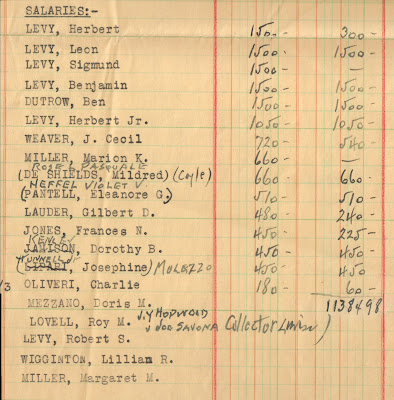 SALARIES:-
LEVY, Herbert 1500- 300-
LEVY, Leon 1500- 1500-
LEVY, Sigmund 1500- —
LEVY, Benjamin 1500- 1500-
DUTROW, Ben 1500- 1500-
LEVY, Herbert Jr. 1050- 1050-
WEAVER, J. Cecil 720- 540-
MILLER, Marion K. 660- —
ROSE L PASQUALE
(DE SHIELDS, Mildred) (Coyle) 660- 660-
HEFFEL VIOLET V.
(PANTELL, Eleanore G.) 510- 510-
LAUDER, Gilbert D. 480- 240-
JONES, Frances N. 450- 225-
KENLEY
JAMISON, Dorothy B. 450- 450-
(, Josephine) MULAZZO 450- 450
/3 OLIVERI, Charlie 180- 60-
MEZZANO, Doris M. 1138498
LOVELL, Roy M. J.Y HOPWOOD
v JOE SAVONA Collector
LEVY, Robert S.
WIGGINTON, Lillian R.
MILLER, Margaret M.